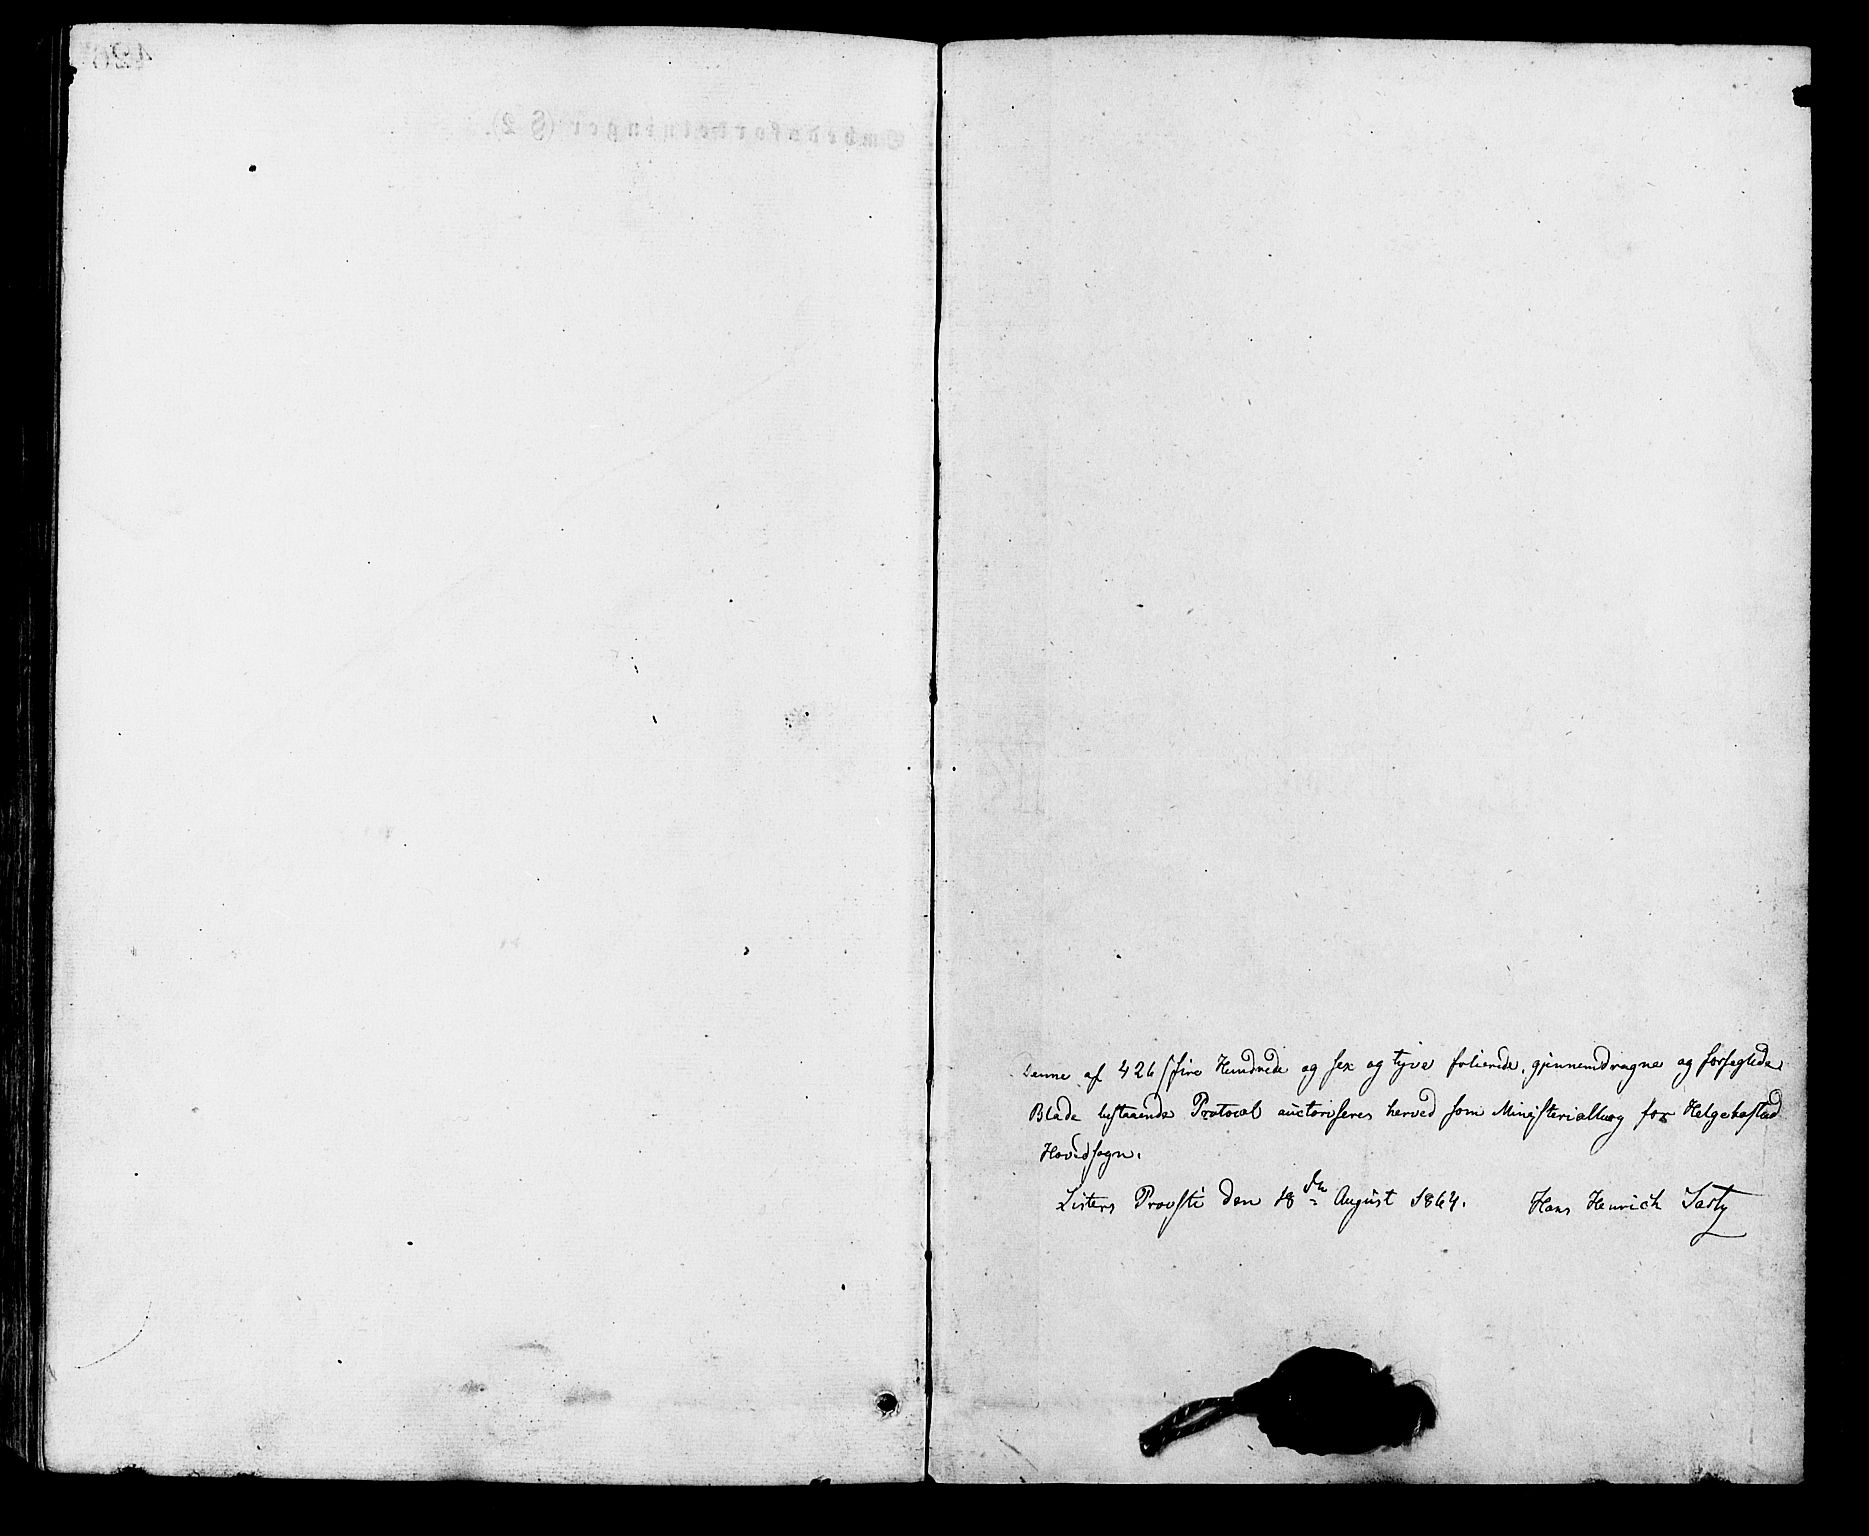 426
Embedsforretninger (§ 2).
Denne af 426 / fire Hundrede og sex og tyve folierede, gjennemdragne og forseglede
Blade bestaaende Protocol auctoriseres herved som Ministerialbog for Helgebostad
Hovedsogn.
Listers Provsti den 18de August 1864. Hans Henrich